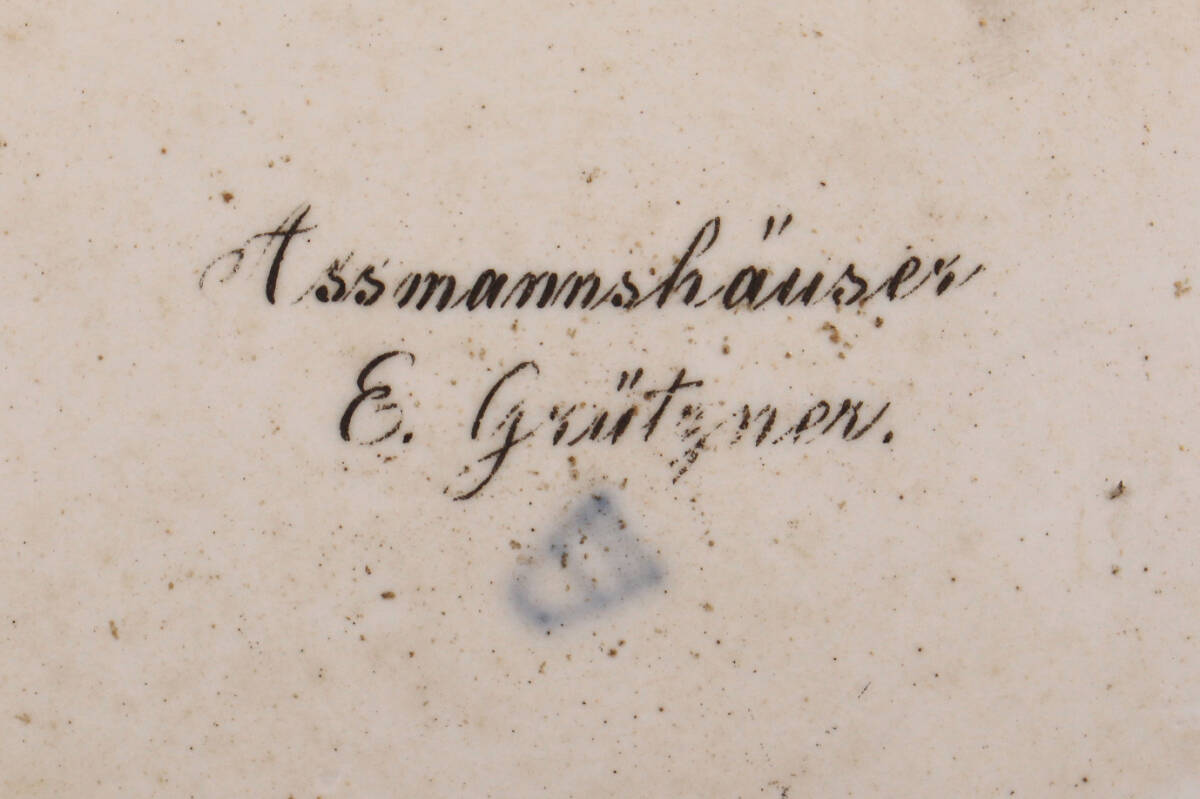 Assmannshäuser
E. Grützner.